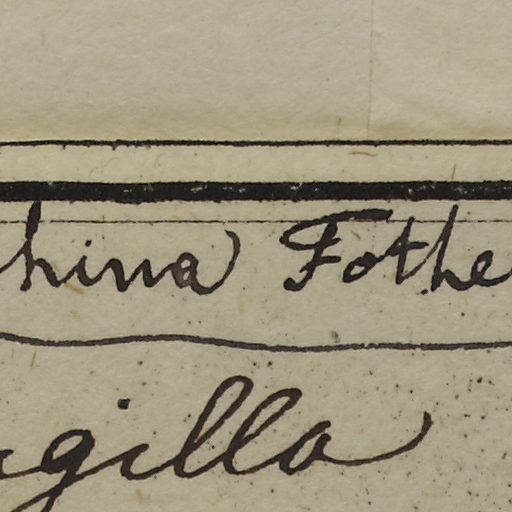 hina Fothe
gilla